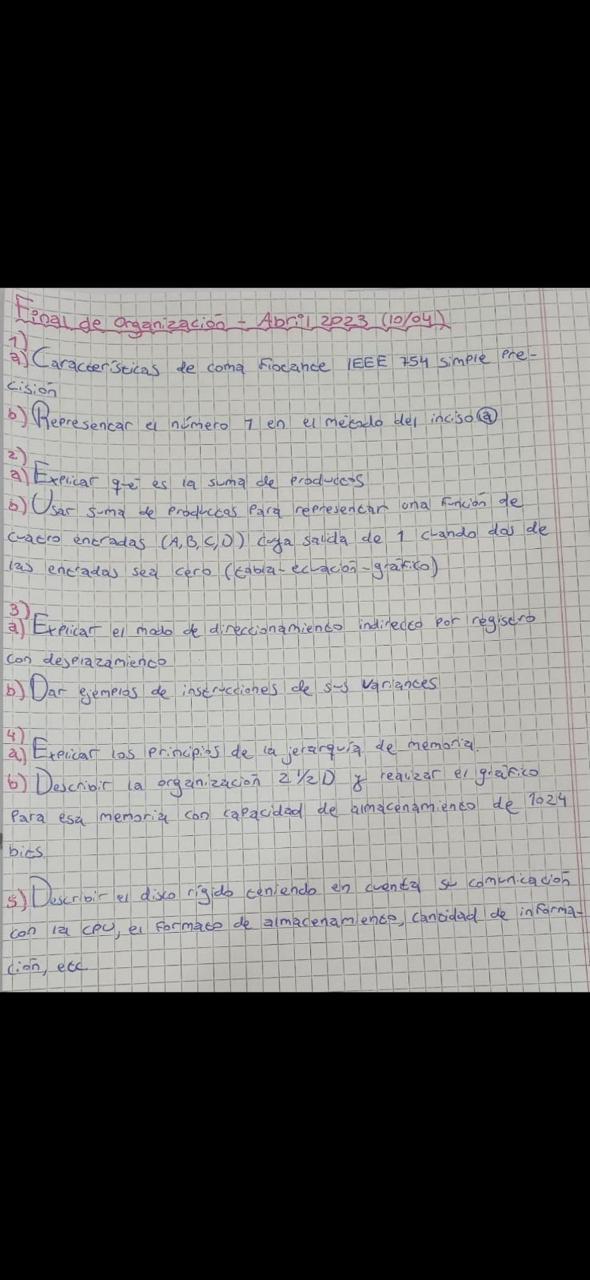 Final de Organización - Abril 2023 (10/04)
1)
a) Características de coma flotante IEEE 754 simple pre-
cisión
b) Representar el número 7 en el método del inciso a
2)
a) Explicar qué es la suma de productos
b) Usar suma de productos para representar una función de
cuatro entradas (A,B,C,D) cuya salida de 1 cuando dos de
las entradas sea cero (tabla-ecuación-gráfico)
3)
a) Explicar el modo de direccionamiento indirecto por registro
con desplazamiento
b) Dar ejemplos de instrucciones de sus variantes
4)
a) Explicar los principios de la jerarquía de memoria.
b) Describir la organización 2 1/2 D y realizar el gráfico
para esa memoria con capacidad de almacenamiento de 1024
bits.
5) Describir el disco rígido teniendo en cuenta su comunicación
con la CPU, el formato de almacenamiento, cantidad de informa-
ción, etc